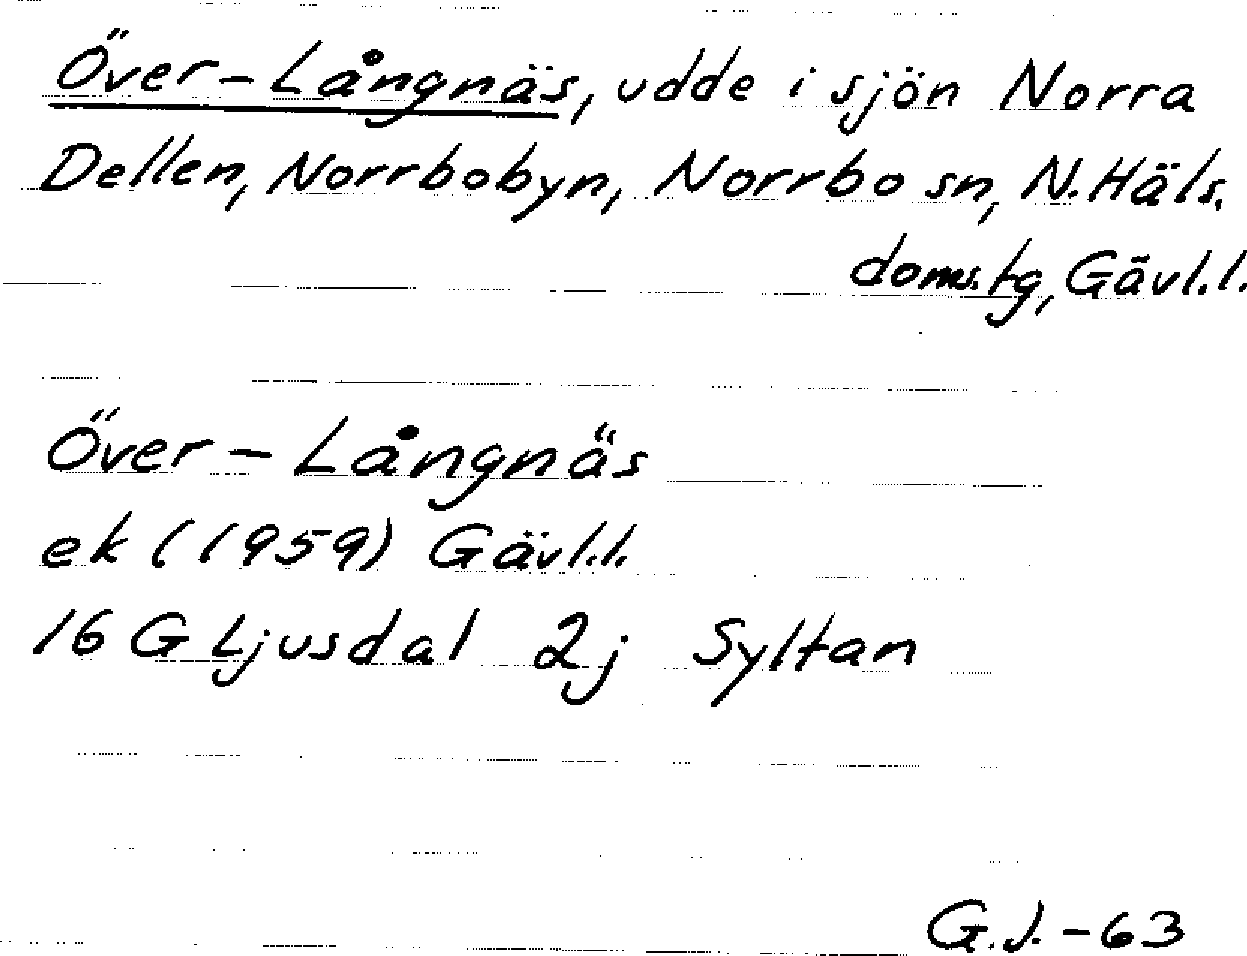 Över-Långnäs, udde i sjön Norra
Dellen, Norrbobyn, Norrbo sn, N. Häls.
doms.tg, Gävl.l.
Över-Långnäs
ek (1959) Gävl.l.
16 G Ljusdal 2j Syltan
G.J.-63